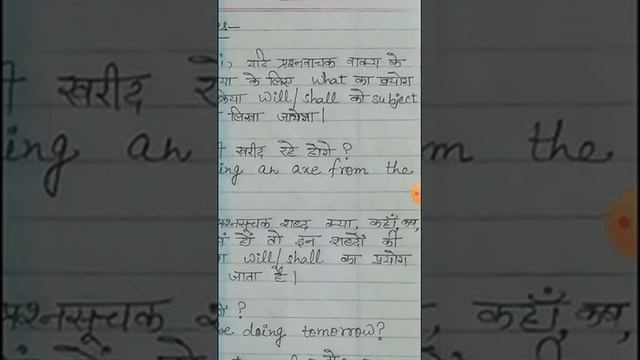 es-
, यदि प्रश्नवाचक वाक्य के
या के लिए What का प्रयोग
क्रिया will/shall को subject
लिखा जायेगा।
ी खरीद रहे होगे ?
ing an axe from the
प्रश्नसूचक शब्द क्या, कहाँ, कब,
हों तो इन शब्दों की
will/shall का प्रयोग
जाता है।
?
be doing tomorrow?